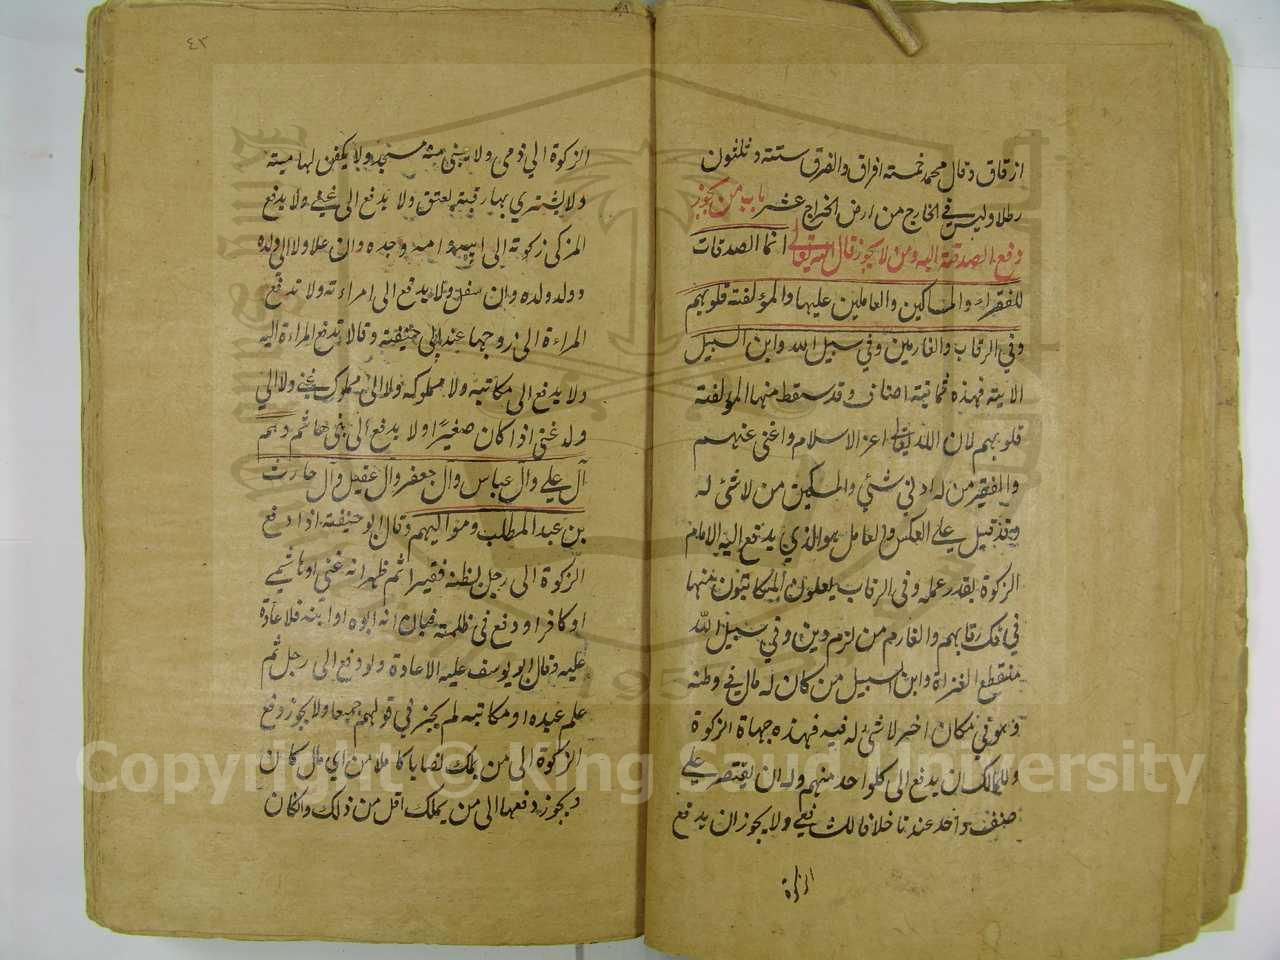 ازقاق وقال محمد خمسة افراق والفرق ستة وثلثون
رطلا وليس في الخارج من ارض الخراج عشر باب من يجوز
دفع الصدقة اليه ومن لا يجوز قال الله تعالى انما الصدقات
للفقراء والمساكين والعاملين عليها والمؤلفة قلوبهم
وفي الرقاب والغارمين وفي سبيل الله وابن السبيل
الاية فهذه ثمانية اصناف وقد سقط منها المؤلفة
قلوبهم لان الله تعالى اعز الاسلام واغنى عنهم
والفقير من له ادنى شئي والمسكين من لاشئ له
وقد قيل على العكس والعامل هو الذي يدفع اليه الامام
الزكوة بقدر عمله وفي الرقاب يعلون المكاتبون منها
في فك رقابهم والغارم من لزم دين وفي سبيل الله
منقطع الغزاة وابن السبيل من كان له مال في وطنه
وهو في مكان اخر لاشئ له فيه فهذه جهاة الزكوة
وللمالك ان يدفع الى كلواحد منهم وله ان يقتصر على
صنف واحد عندنا خلافا للشافعي ولا يجوز ان يدفع
الزكوة
٤٣
الزكوة الي ذمى ولا يبنى منه مسجد ولا يكفن لها ميته
ولا يشتري بها رقبة يعتق ولا يدفع الى غني ولا يدفع
المزكى زكوته الى ابيه وامه وجده وان علا ولا الى ولده
وولد ولده وان سفل ولا يدفع الى امراءته ولا تدفع
المراءة الى زوجها عند ابي حنيفة وقالا تدفع المراءة اليه
ولا يدفع الى مكاتبه ولا مملوكه ولا الى مملوك غني ولا الي
ولد غني اذا كان صغيرا ولا يدفع الى بني هاشم وهم
آل علي وآل عباس وآل جعفر وآل عقيل وآل حارث
بن عبد المطلب ومواليهم وقال ابو حنيفة اذا دفع
الزكوة الى رجل يظنه فقيرا ثم ظهر انه غني او هاشمي
او كافر او دفع في ظلمة فبان انه ابوه او ابنه فلا اعادة
عليه وقال ابو يوسف عليه الاعادة ولو دفع الى رجل ثم
علم عبده او مكاتبه لم يجز في قولهم جميعا ولا يجوز دفع
الزكوة الى من يملك نصابا كاملا من اي مال كان
ويجوز دفعها الى من يملك اقل من ذلك وان كان
Copyright © King Saud University
1957